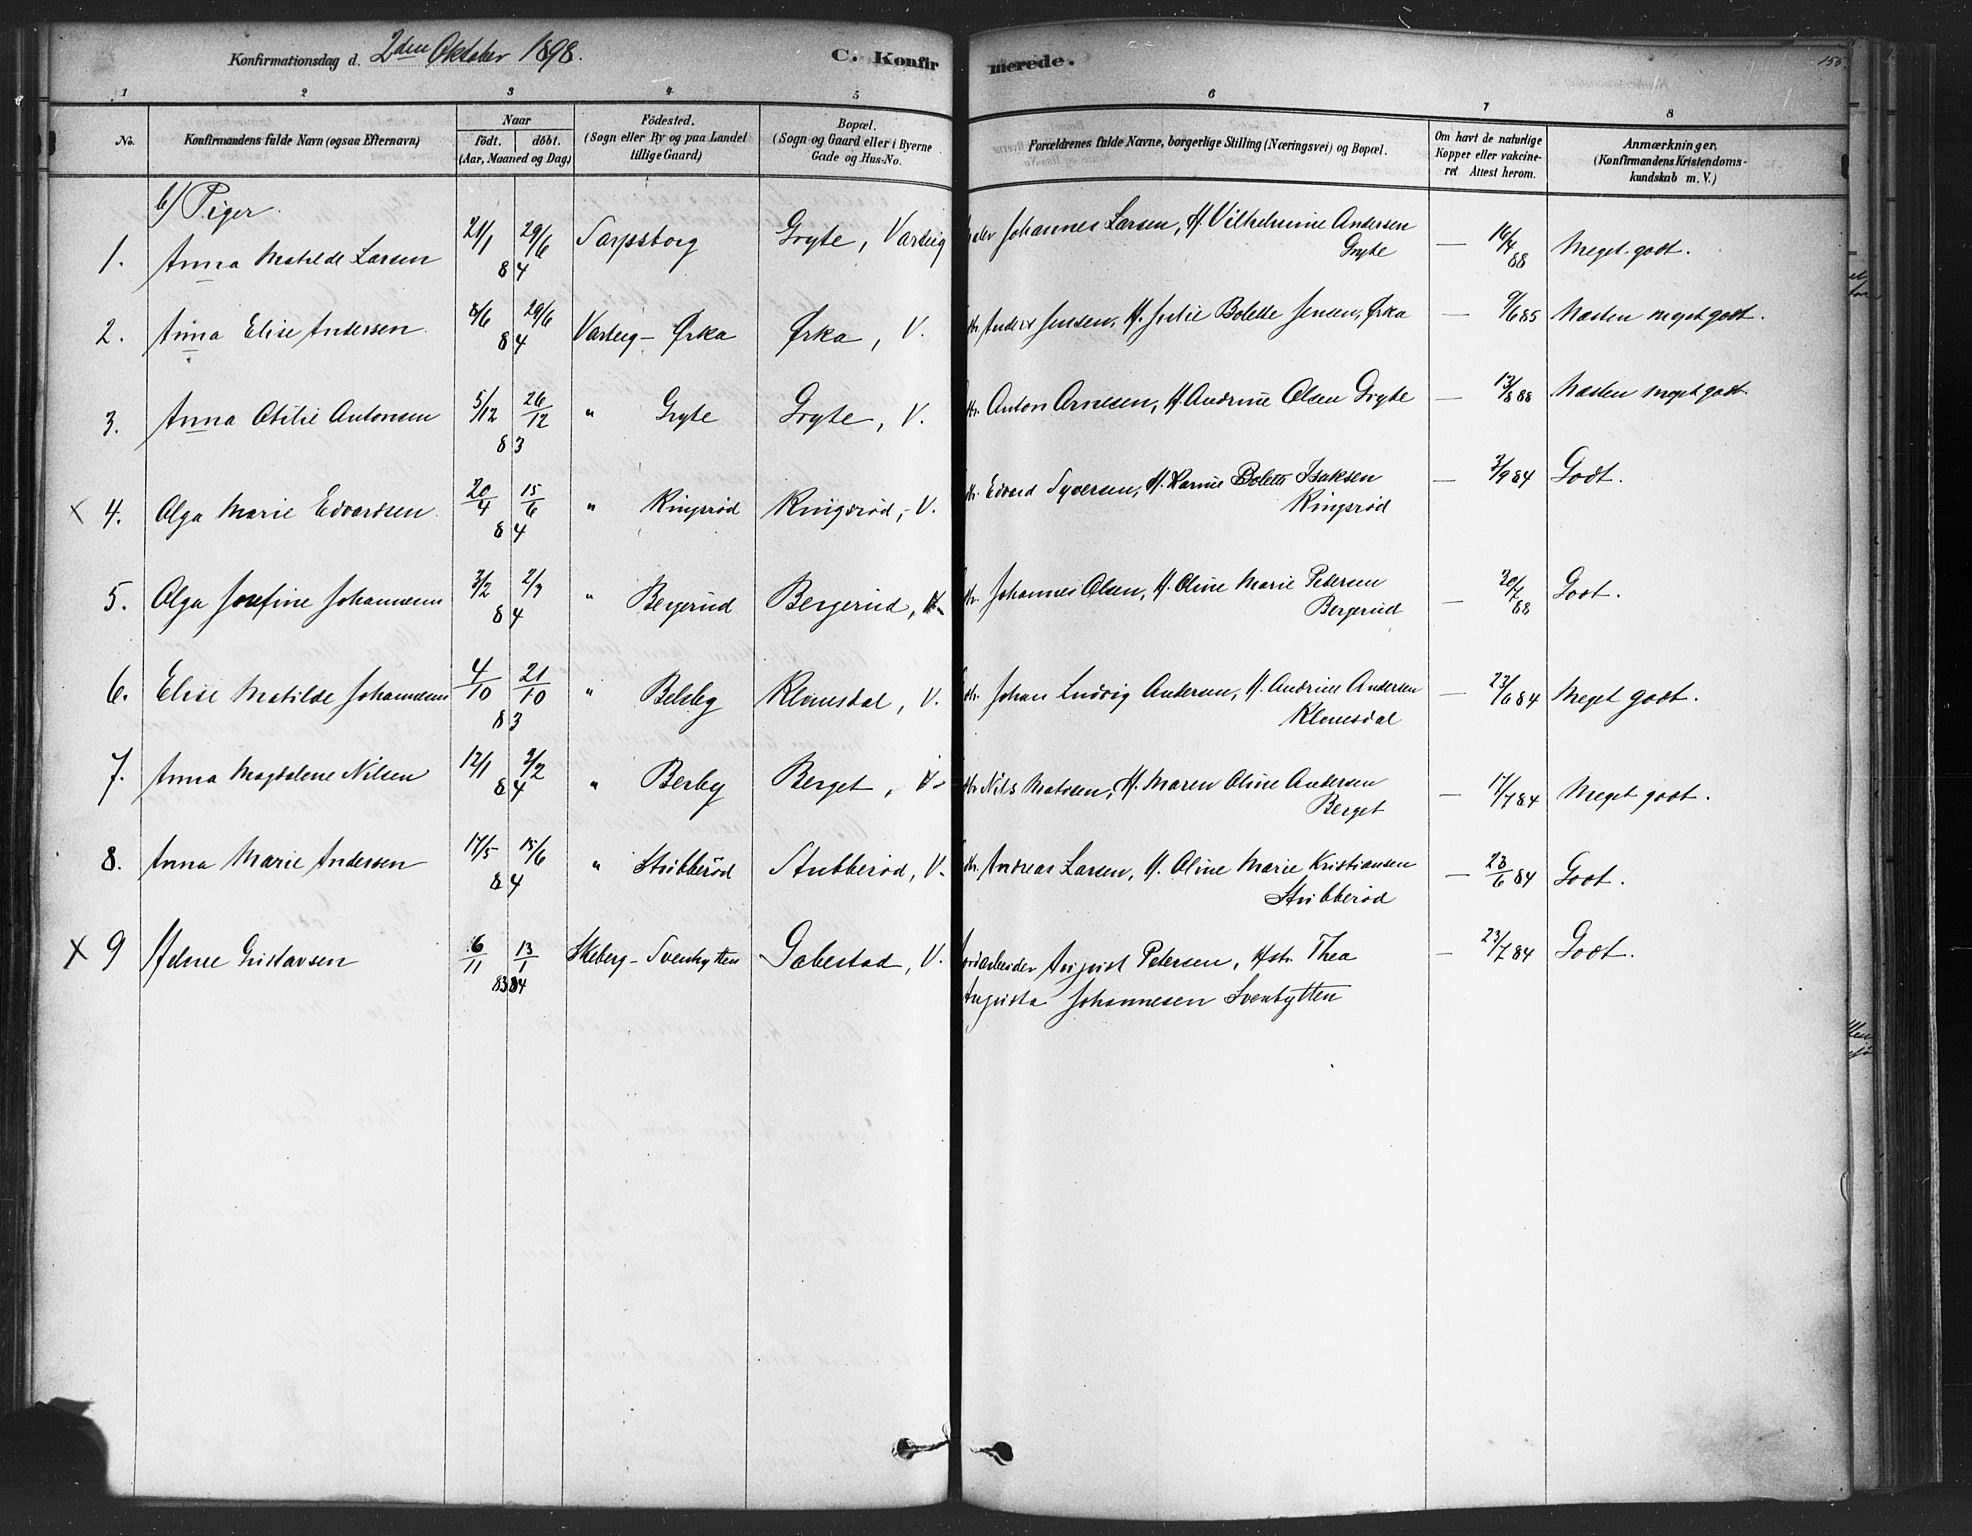 Konfirmationsdag d. 2den Oktober 1898. C. Konfirmerede. 155.
1 2 3 4 5 6 7 8
No. Konfirmandens fulde Navn (ogsaa Efternavn) Naar födt. döbt. (Aar, Maaned og Dag) Födested. (Sogn eller By og paa Landet tillige Gaard) Bopæl. (Sogn og Gaard eller i Byerne Gade og Hus-No. Forældrenes fulde Navne, borgerlige Stilling (Næringsvei) og Bopæl. Om havt de naturlige Kopper eller vakcineret Attest herom. Anmærkninger. (Konfirmandens Kristendomskundskab m. V.)
b) Piger.
1. Anna Matilde Larsen 21/1 29/6 84 Sarpsborg Gryte, Varteig Johannes Larsen, H. Vilhelmine Andersen Gryte — 16/4 88 Meget godt.
2. Anna Elise Andersen. 8/6 29/6 84 Varteig - Ørka Ørka, V. Anders Jensen, H. Julie Bolette Jensen, Ørka — 9/6 85 Næsten meget godt.
3. Anna Otilie Antonsen 5/12 26/12 83 " Gryte Gryte, V. Anton Arnesen, H. Andrine Olsen Gryte — 13/8 88 Næsten meget godt.
x 4. Olga Marie Edvardsen. 20/4 15/6 84 " Ringsrød Ringsrød, V. Edvard Syversen, H. Karine Bolette Isaksen Ringsrød — 3/9 84 Godt.
5. Olga Josefine Johannesen 3/2 2/3 84 " Bergerud Bergerud, V. Johannes Olsen, H. Oline Marie Pedersen Bergerud — 20/7 88 Godt.
6. Elise Matilde Johannesen 4/10 21/10 83 " Belsby Klomsdal, V. Johan Ludvig Andersen, H. Andrine Andersen Klomsdal — 23/6 84 Meget godt.
7. Anna Magdalene Nilsen 12/1 2/2 84 " Berby Berget, V. Nils Matisen, H. Maren Oline Andersen Berget — 17/7 84 Meget godt.
8. Anna Marie Andersen 17/5 15/6 84 " Stubberød Stubberød, V. Andreas Larsen, H. Oline Marie Kristiansen Stubberød — 23/6 84 Godt.
x 9 Gustavsen 6/11 13/1 83 84 Skeberg - Svenbytten Gabestad, V. August Petersen, Hstr. Thea — 23/7 84 Godt.
Augusta Johannesen Svenbytten